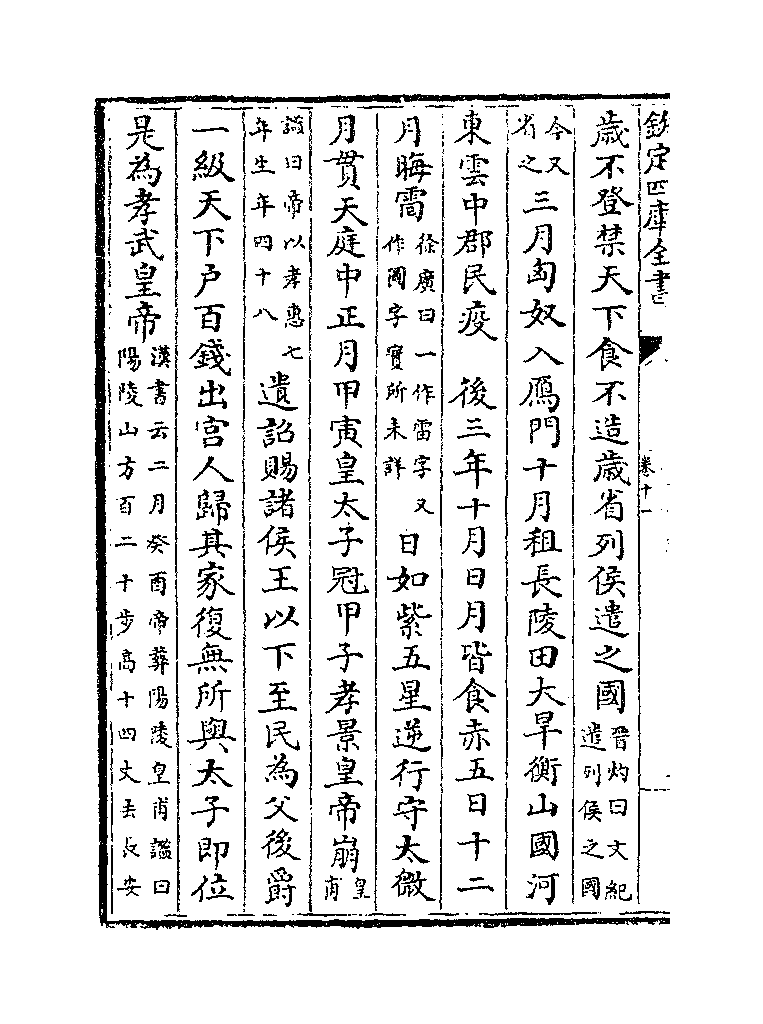 欽定四庫全書
卷十一
歳不登禁天下食不造歳省列侯遣之國晉灼曰文紀遣列侯之國
今又省之三月匈奴入鴈門十月租長陵田大旱衡山國河
東雲中郡民疫　後三年十月日月皆食赤五日十二
月晦䨓徐廣曰一作雷字又作圖字實所未詳日如紫五星逆行守太微
月貫天庭中正月甲寅皇太子冠甲子孝景皇帝崩皇甫
謐曰帝以孝惠七年生年四十八遺詔賜諸侯王以下至民為父後爵
一級天下户百錢出宫人歸其家復無所與太子即位
是為孝武皇帝漢書云二月癸酉帝葬陽陵皇甫謐曰陽陵山方百二十步高十四丈去長安